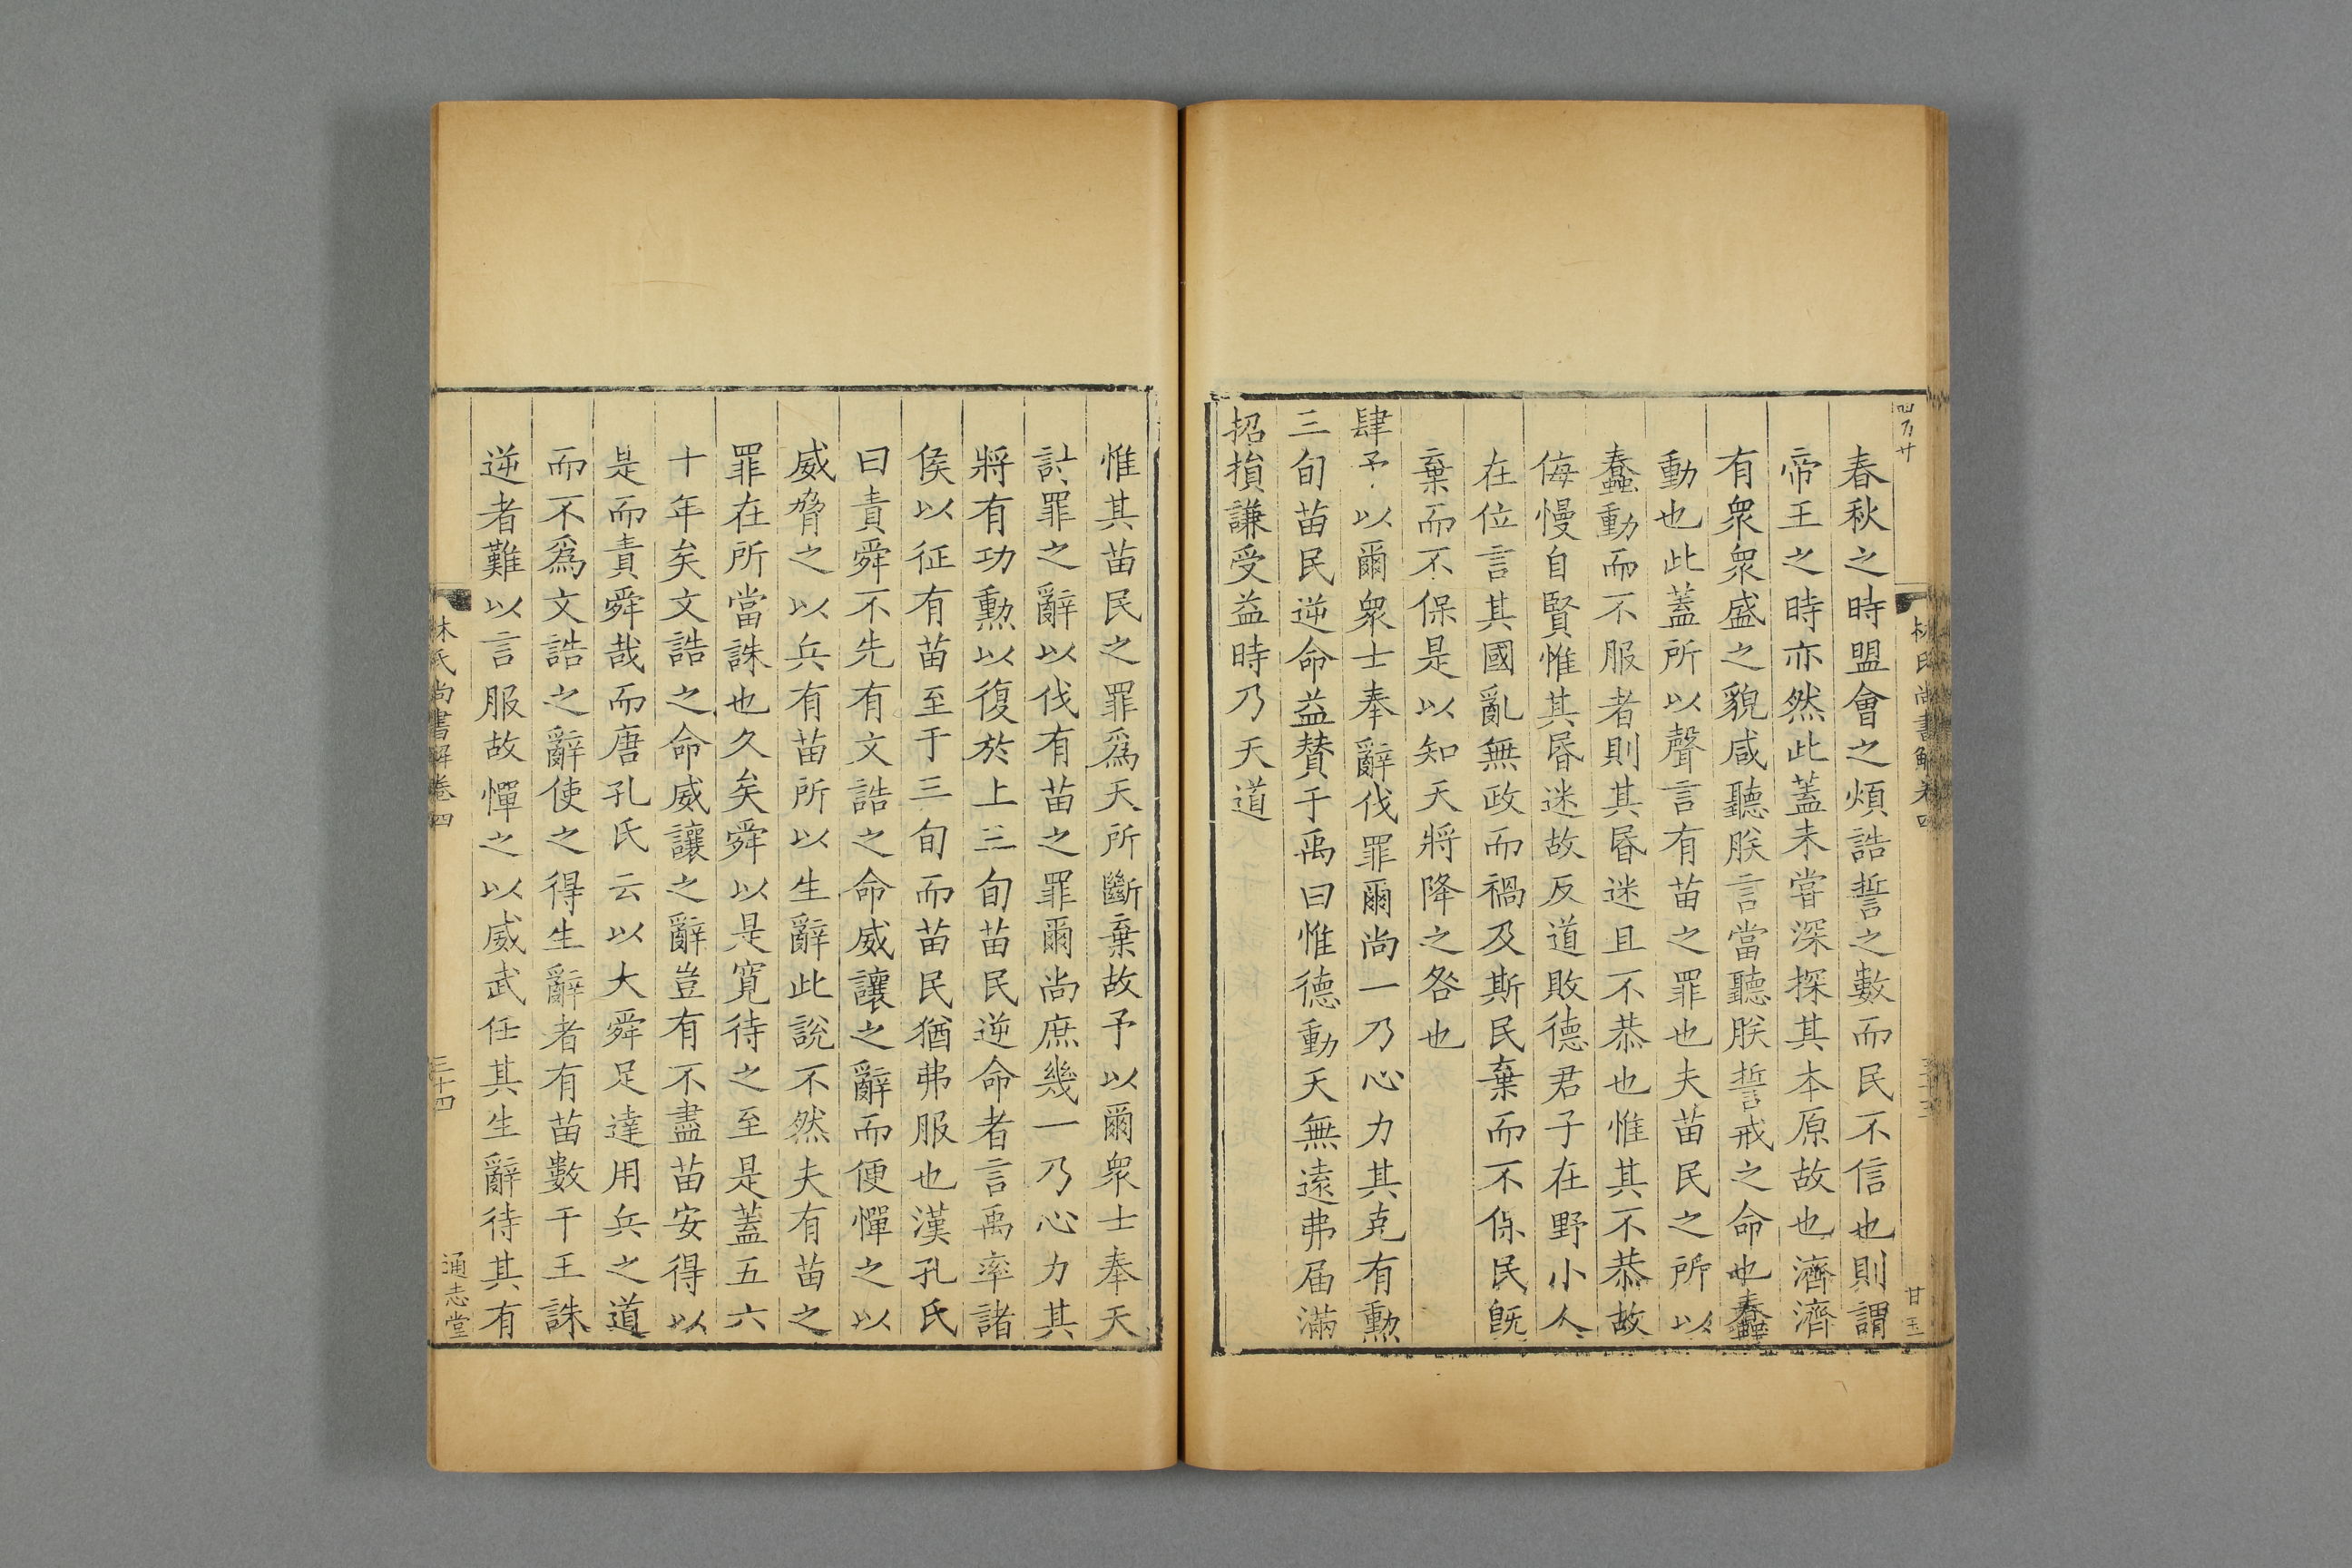 春秋之時盟會之煩誥誓之數而民不信也則謂
帝王之時亦然此蓋未嘗深探其本原故也濟濟
有衆衆盛之貌咸聽朕言當聽朕誓戒之命也蠢
動也此蓋所以聲言有苗之罪也夫苗民之所以
蠢動而不服者則其昬迷且不恭也惟其不恭故
侮慢自賢惟其昬迷故反道敗德君子在野小人
在位言其國亂無政而禍及斯民棄而不保民旣
棄而不保是以知天將降之咎也
肆予以爾衆士奉辭伐罪爾尚一乃心力其克有勲
三旬苗民逆命益贊于禹曰惟德動天無遠弗届滿
招損謙受益時乃天道
惟其苗民之罪爲天所斷棄故予以爾衆士奉天
討罪之辭以伐有苗之罪爾尚庶幾一乃心力其
將有功勲以復於上三旬苗民逆命者言禹率諸
侯以征有苗至于三旬而苗民猶弗服也漢孔氏
曰責舜不先有文誥之命威讓之辭而便憚之以
威脅之以兵有苗所以生辭此說不然夫有苗之
罪在所當誅也久矣舜以是寛待之至是蓋五六
十年矣文誥之命威讓之辭豈有不盡苗安得以
是而責舜哉而唐孔氏云以大舜足達用兵之道
而不爲文誥之辭使之得生辭者有苗數干王誅
逆者難以言服故憚之以威武任其生辭待其有
林氏尚書解卷四
三十四
通志堂